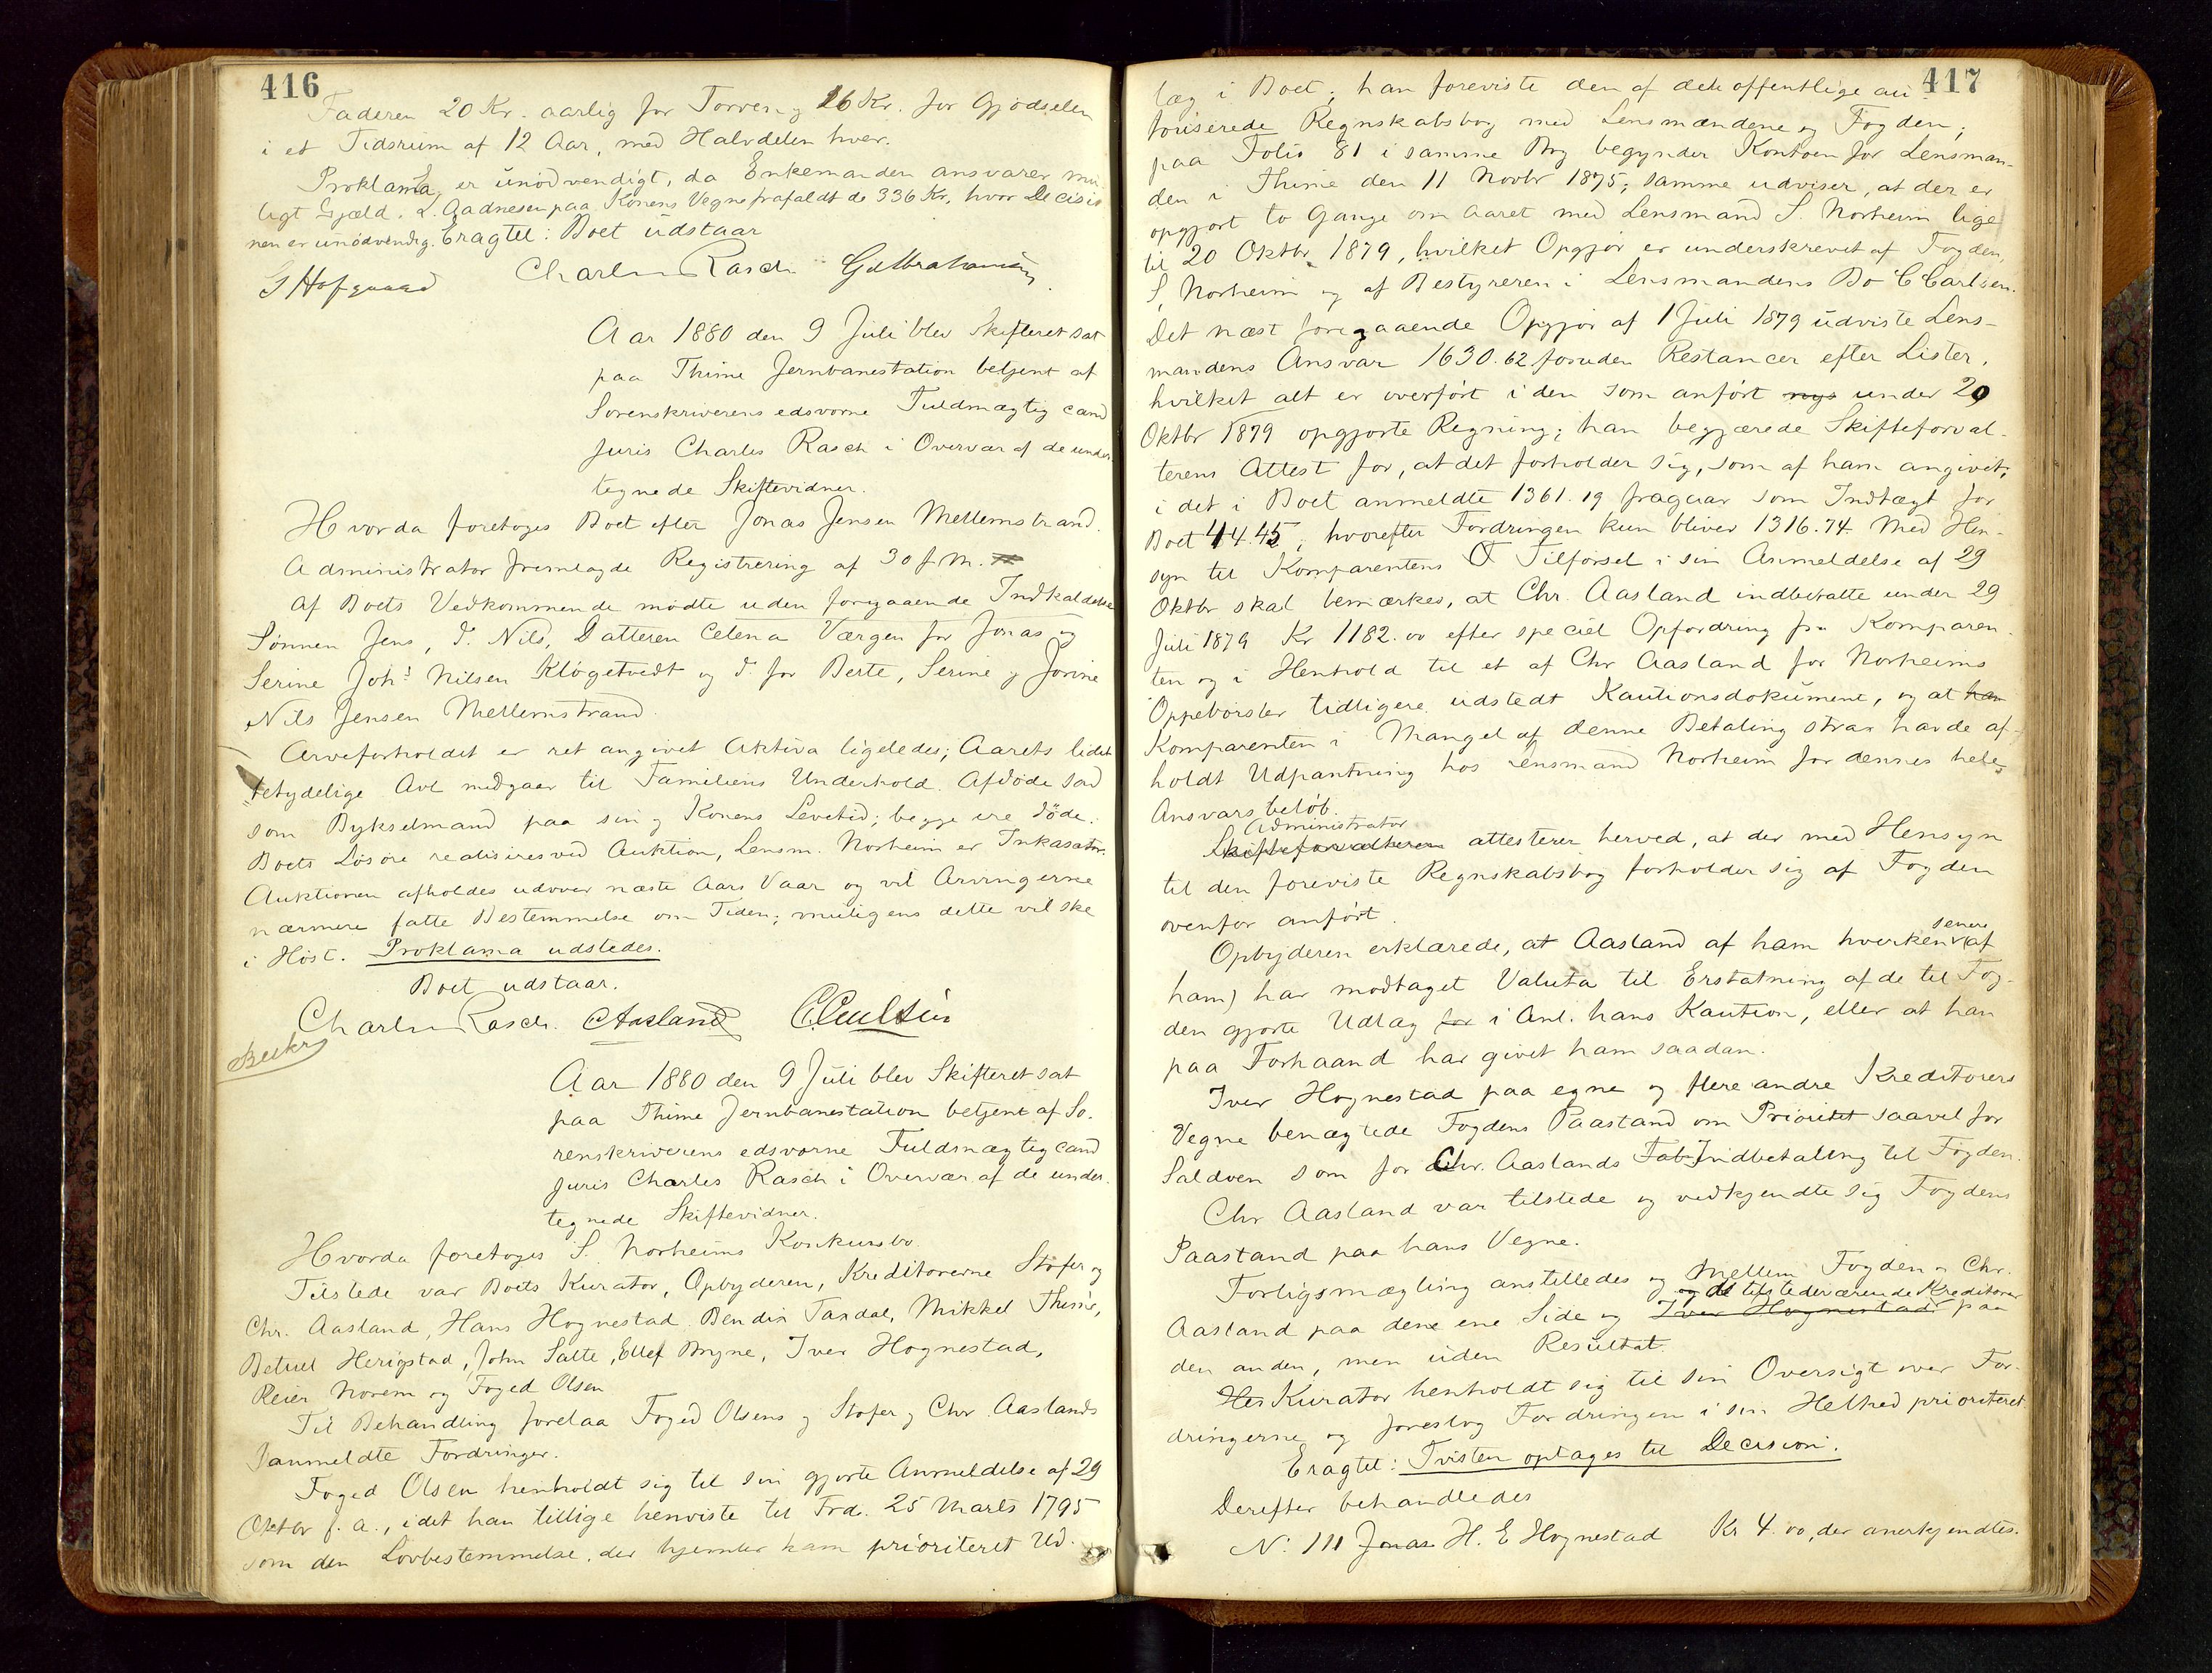 416
Faderen 20 Kr. aarlig for Torven og 26 Kr. for Gjødselen
i et Tidsrum af 12 Aar, med Halvdelen hver.
Proklama er unødvendigt, da Enkemanden ansvarer mu-
ligt Gjæld. L. Aadnesen paa Konens Vegne frafaldt de 336 Kr, hvor Decisio
nen er unødvendig. Eragtet: Boet udstaar
S Hofgaard Charles Rasch G Abrahamsen
Aar 1880 den 9 Juli blev Skifteret sat
paa Thime Jernbanestation betjent af
Sorenskriverens edsvorne Fuldmægtig cand
juris Charles Rasch i Overvær af de under-
tegnede Skiftevidner.
Hvorda foretoges Boet efter Jonas Jensen Mellemstrand.
Administrator fremlagde Registrering af 30 f. M.
Af Boets Vedkommende mødte uden foregaaende Indkaldelse
Sønnen Jens, d. Nils, Datteren Celena Værgen for Jonas og
Serine Johs Nilsen Kløgetvedt og d. for Berte, Serine og Jorine
Nils Jensen Mellemstrand.
Arveforholdet er ret angivet Aktiva ligeledes; Aarets lidet
betydelige Avl medgaar til Familiens Underhold. Afdøde sad
som Bykselmand paa sin og Konens Levetid; begge ere døde.
Boets Løsøre realiseres ved Auktion, Lensm. Norheim er Inkasator.
Auktionen afholdes udover næste Aars Vaar og vil Arvingerne
nærmere fatte Bestemmelse om Tiden; muligens dette vil ske
i Høst. Proklama udstedes.
Boet udstaar.
Charles Rasch. C Aasland C. Carlsen
Aar 1880 den 9 Juli blev Skifteret sat
paa Thime Jernbanestation betjent af So-
renskriverens edsvorne Fuldmægtig cand
juris Charles Rasch i Overvær af de under-
tegnede Skiftevidner.
Hvorda foretoges S. Norheims Konkursbo.
Tilstede var Boets Kurator, Opbyderen, Kreditorerne Stofer og
Chr. Aasland, Hans Hognestad, Bendix Taxdal, Mikkel Thime,
Betuel Herigstad, John Salte, Ellef Bryne, Iver Hognestad,
Reier Norem og Foged Olsen
Til Behandling forelaa Foged Olsens og Stofer og Chr. Aaslands
anmeldte Fordringer.
Foged Olsen henholdt sig til sin gjorte Anmeldelse af 29
Oktbr f. a., idet han tillige henviste til Frd. 25 Marts 1795
som den Lovbestemmelse, der hjemler ham prioriteret Ud-
417
læg i Boet; han foreviste den af det offentlige au-
toriserede Regnskabsbog med Lensmændene og Fogden;
paa Folio 81 i samme Bog begynder Kontoen for Lensman-
den i Thime den 11 Novbr 1875; samme udviser, at der er
opgjort to Gange om Aaret med Lensmand S. Norheim lige
til 20 Oktbr 1879, hvilket Opgjør er underskrevet af Fogden,
S. Norheim og af Bestyreren i Lensmandens Bo C Carlsen.
Det næst foregaaende Opgjør af 1 Juli 1879 udviste Lens-
mandens Ansvar 1630.62 foruden Restancer efter Lister,
hvilket alt er overført i den som anført nys under 20
Oktbr 1879 opgjorte Regning; han begjærede Skifteforval-
terens Attest for, at det forholder sig, som af ham angivet;
i det i Boet anmeldte 1361.19 fragaar som Indtægt for
Boet 44.45, hvorefter Fordringen kun bliver 1316.74. Med Hen-
syn til Komparentens Tilførsel i sin Anmeldelse af 29
Oktbr skal bemærkes, at Chr. Aasland indbetalte under 29
Juli 1879 Kr 1182.00 efter speciel Opfordring fra Komparen-
ten og i Henhold til et af Chr Aasland for Norheims
Oppebørsler tidligere udstedt Kautionsdokument, og at han
Komparenten i Mangel af denne Betaling strax havde af-
holdt Udpantning hos Lensmand Norheim for dennes hele
Ansvarsbeløb.
Administrator
Skifteforvalteren attesterer herved, at der med Hensyn
til den foreviste Regnskabsbog forholder sig af Fogden
ovenfor anført.
senere
Opbyderen erklærede, at Aasland af ham hverken (af
ham) har modtaget Valuta til Erstatning af de til Fog-
den gjorte Udlæg for i Anl. hans Kaution, eller at han
paa Forhaand har givet ham saadan.
Iver Hognestad paa egne og flere andre Kreditorers
Vegne benægtede Fogdens Paastand om Prioritet saavel for
Saldoen som for Chr. Aaslands Indbetaling til Fogden.
Chr Aasland var tilstede og vedkjendte sig Fogdens
Paastand paa hans Vegne.
Forligsmægling anstilledes og Mellem Fogden og Chr.
og de tilstedeværende Kreditorer
Aasland paa dene ene Side og Iver Hognestad paa
den anden, men uden Resultat.
Kurator henholdt sig til sin Oversigt over For-
dringerne og foreslog Fordringen i sin Helhed prioriteret
Eragtet: Tvisten optages til Decision.
Derefter behandledes
N: 111 Jonas H. E Hognestad Kr 4.00, der anerkjendtes.